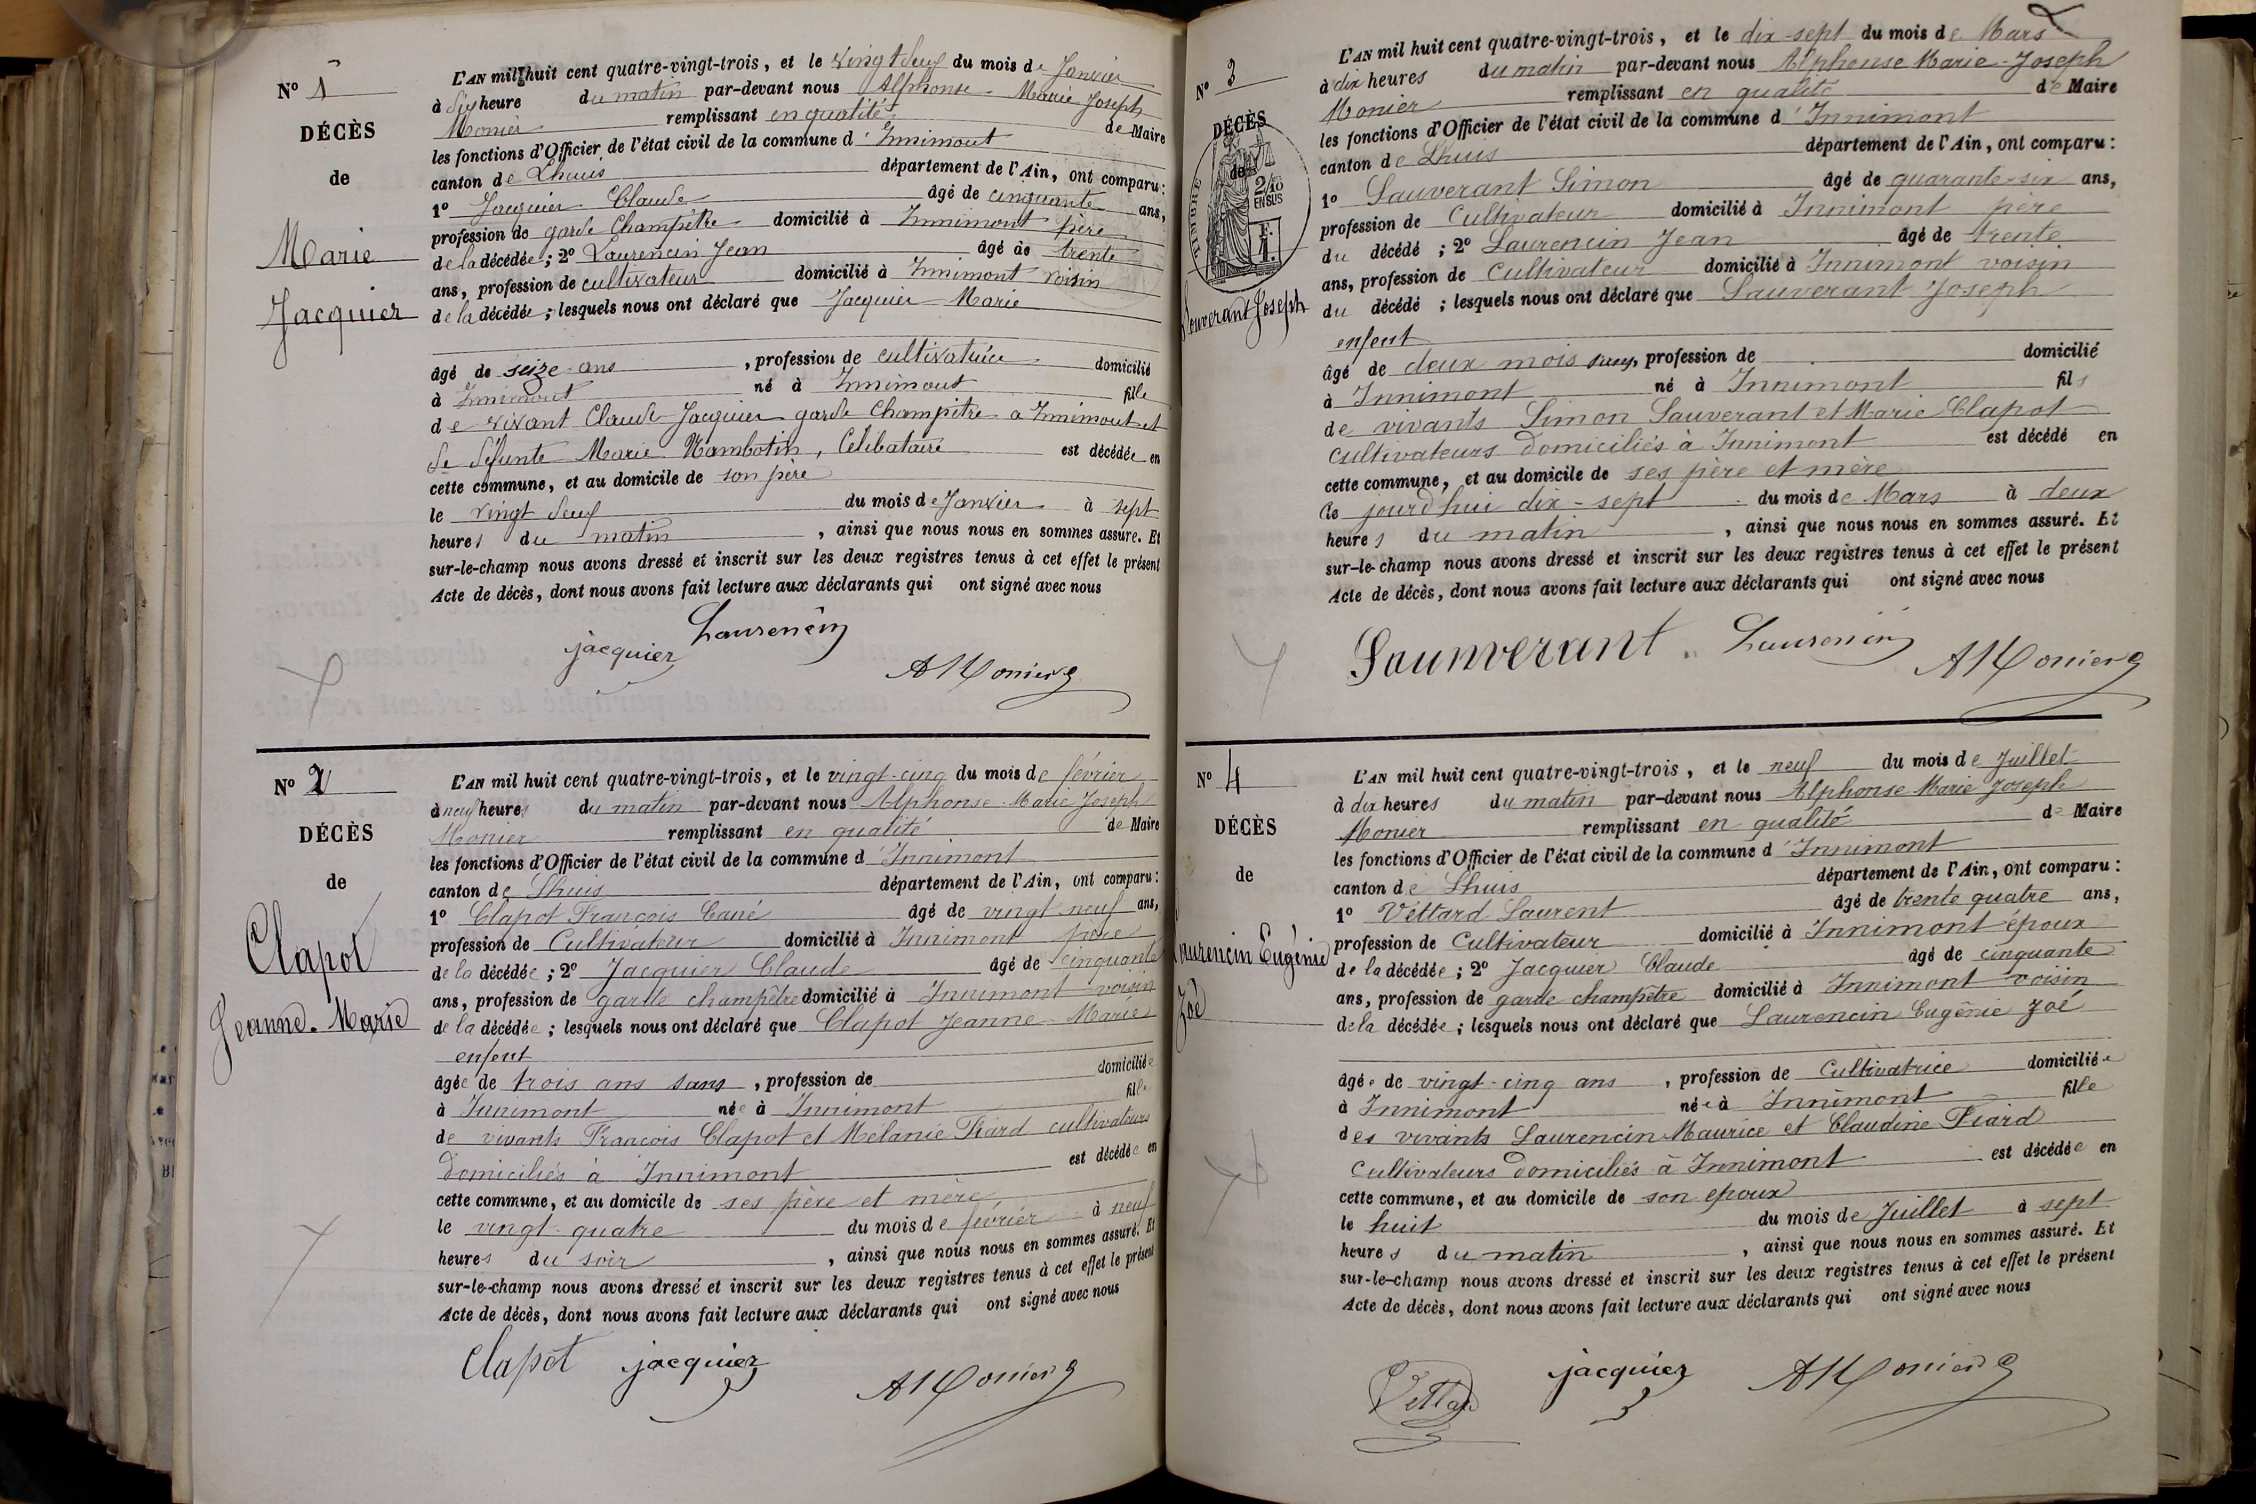 N° 1
DÉCÈS
de
Marie
Jacquier
L'AN mil huit cent quatre-vingt-trois, et le vingt deux du mois de Janvier
à dix heure du matin par-devant nous Alphonse Marie Joseph
Monier remplissant en qualité de Maire
les fonctions d'Officier de l'état civil de la commune d'Innimont
canton de Lhuis département de l'Ain, ont comparu :
1° Jacquier Claude âgé de cinquante ans,
profession de garde Champêtre domicilié à Innimont père
de la décédée ; 2° Laurencin Jean âgé de trente
ans, profession de cultivateur domicilié à Innimont voisin
de la décédée ; lesquels nous ont déclaré que Jacquier Marie
âgé de seize ans , profession de cultivatrice domicilié
à Innimont né à Innimont fille
de vivant Claude Jacquier garde Champêtre a Innimont et
de défunte Marie Mambotin, Célibataire est décédée en
cette commune, et au domicile de son père
le vingt deux du mois de Janvier à sept
heures du matin , ainsi que nous nous en sommes assuré. Et
sur-le-champ nous avons dressé et inscrit sur les deux registres tenus à cet effet le présent
Acte de décès, dont nous avons fait lecture aux déclarants qui ont signé avec nous
Laurencin
jacquier
A Monier
N° 2
DÉCÈS
de
Clapot
Jeanne-Marie
L'AN mil huit cent quatre-vingt-trois, et le vingt-cinq du mois de février
à neuf heures du matin par-devant nous Alphonse Marie Joseph
Monier remplissant en qualité de Maire
les fonctions d'Officier de l'état civil de la commune d'Innimont
canton de Lhuis département de l'Ain, ont comparu :
1° Clapot François âgé de vingt neuf ans,
profession de Cultivateur domicilié à Innimont père
de la décédée ; 2° Jacquier Claude âgé de cinquante
ans, profession de garde champêtre domicilié à Innimont voisin
de la décédée ; lesquels nous ont déclaré que Clapot Jeanne-Marie
enfent
âgée de trois ans sans , profession de domiciliée
à Innimont née à Innimont fille
de vivants François Clapot et Mélanie Fiard cultivateurs
domiciliés à Innimont est décédée en
cette commune, et au domicile de ses père et mère
le vingt-quatre du mois de février à neuf
heures du soir , ainsi que nous nous en sommes assuré. Et
sur-le-champ nous avons dressé et inscrit sur les deux registres tenus à cet effet le présent
Acte de décès, dont nous avons fait lecture aux déclarants qui ont signé avec nous
Clapot jacquier
A Monier
N° 3
DÉCÈS
de
TIMBRE
2/10
EN SUS
F.
1.
Souverant Joseph
L'AN mil huit cent quatre-vingt-trois, et le dix-sept du mois de Mars
à dix heures du matin par-devant nous Alphonse Marie-Joseph
Monier remplissant en qualité de Maire
les fonctions d'Officier de l'état civil de la commune d'Innimont
canton de Lhuis département de l'Ain, ont comparu :
1° Sauverant Simon âgé de quarante-six ans,
profession de Cultivateur domicilié à Innimont père
du décédé ; 2° Laurencin Jean âgé de trente
ans, profession de Cultivateur domicilié à Innimont voisin
du décédé ; lesquels nous ont déclaré que Sauverant Joseph
enfent
âgé de deux mois sans, profession de domicilié
à Innimont né à Innimont fils
de vivants Simon Sauverant et Marie Clapot
cultivateurs domiciliés à Innimont est décédé en
cette commune, et au domicile de ses père et mère
le jourd'hui dix-sept du mois de Mars à deux
heures du matin , ainsi que nous nous en sommes assuré. Et
sur-le-champ nous avons dressé et inscrit sur les deux registres tenus à cet effet le présent
Acte de décès, dont nous avons fait lecture aux déclarants qui ont signé avec nous
Sounverant Laurencin
A Monier
N° 4
DÉCÈS
de
Laurencin Eugénie
Zoé
L'AN mil huit cent quatre-vingt-trois, et le neuf du mois de Juillet
à dix heures du matin par-devant nous Alphonse Marie Joseph
Monier remplissant en qualité de Maire
les fonctions d'Officier de l'état civil de la commune d'Innimont
canton de Lhuis département de l'Ain, ont comparu :
1° Véttard Laurent âgé de trente quatre ans,
profession de Cultivateur domicilié à Innimont époux
de la décédée ; 2° Jacquier Claude âgé de cinquante
ans, profession de garde champêtre domicilié à Innimont voisin
de la décédée ; lesquels nous ont déclaré que Laurencin Eugénie Zoé
âgée de vingt-cinq ans , profession de Cultivatrice domiciliée
à Innimont née à Innimont fille
des vivants Laurencin Maurice et Claudine Fiard
Cultivateurs domiciliés à Innimont est décédée en
cette commune, et au domicile de son epoux
le huit du mois de Juillet à sept
heures du matin , ainsi que nous nous en sommes assuré. Et
sur-le-champ nous avons dressé et inscrit sur les deux registres tenus à cet effet le présent
Acte de décès, dont nous avons fait lecture aux déclarants qui ont signé avec nous
Vettard jacquier A Monier